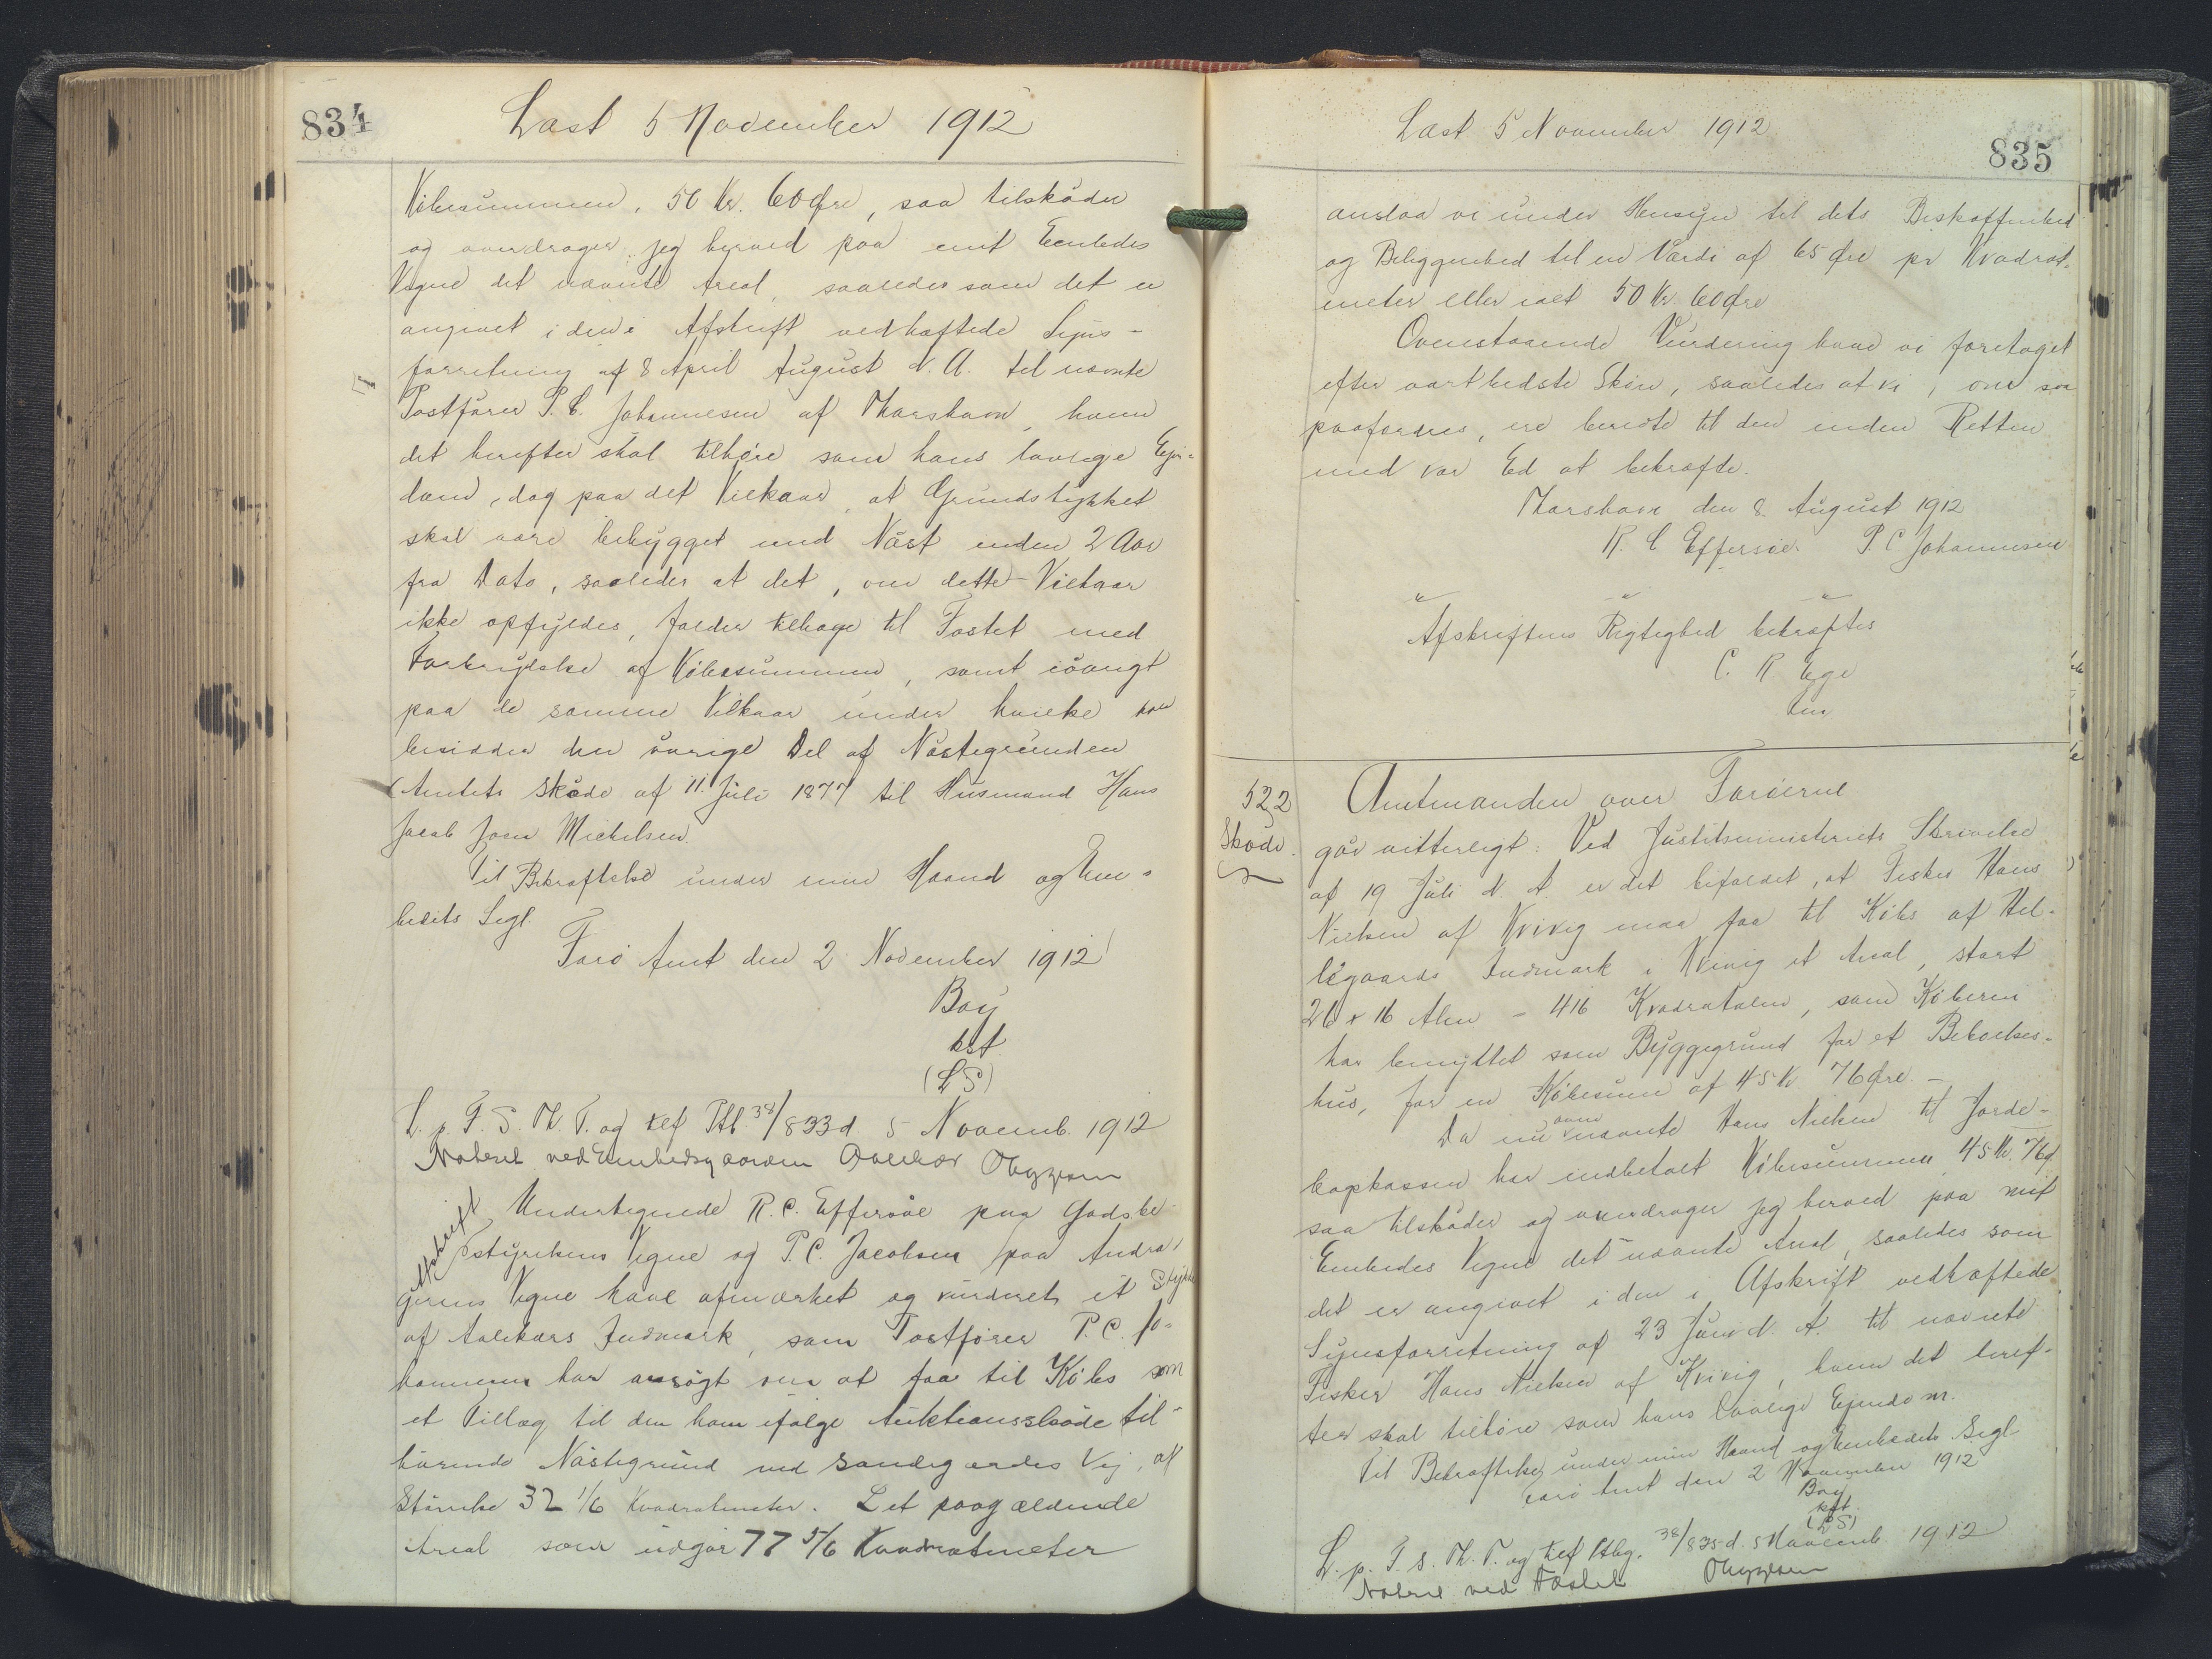 834
Læst 5 November 1912
Købesummen, 50 Kr. 60 Øre, saa tilskøder
og overdrager jeg herved paa mit Embedes
Vegne det nævnte Areal, saaledes som det er
angivet i den i Afskrift vedhæftede Syns-
forretning af 8 April August d. A. til nævnte
Postfører P. C. Johannesen af Thorshavn, hvem
det herefter skal tilhøre som hans lovlige Ejen-
dom, dog paa det Vilkaar, at Grundstykket
skal være bebygget med Nøst inden 2 Aar
fra Dato, saaledes at det, om dette Vilkaar
ikke opfyldes, falder tilbage til Fæstet med
Fortrydelse af Købesummen, samt iøvrigt
paa de samme Vilkaar under hvilke han
besidder den øvrige Del af Nøstegrunden
(Amtets Skøde af 11. Juli 1877 til Husmand Hans
Jacob Joen Michelsen.
Til Bekræftelse under min Haand og Em-
bedets Segl.
Færø Amt den 2 November 1912
Bay
kst
(LS)
L. p. F. S. Th. T. og ref Ptb. 38/833 d. 5 Novemb. 1912
Noteret ved Embedsgaarden
Afskrift
Undertegnede R. C. Effersøe paa Godsbe-
styrelsens Vegne og P. C. Jacobsen paa Andra-
gerens Vegne have afmærket og vurderet et Stykke
af Aalekærs Indmark, som Postfører P. C. Jo-
hannesen har ansøgt om at faa til Købs som
et Tillæg til den ham ifølge Auktionsskøde til-
hørende Nøstegrund ved Sandegærdes Vej, af
Størrelse 32 1/6 Kvadratmeter. Det paagældende
Areal som udgør 77 5/6 Kvadratmeter
Læst 5 November 1912
835
anslaa vi under Hensyn til dets Beskaffenhed
og Beliggenhed til en Værdi af 65 Øre pr Kvadrat-
meter eller ialt 50 Kr 60 Øre
Ovenstaaende Vurdering have vi foretaget
efter vort bedste Skøn, saaledes at vi, om saa
paafordres, ere beredte til den inden Retten
med vor Ed at bekræfte.
Thorshavn den 8 August 1912
R. C. Effersøe. P. C Johannesen
Afskriftens Rigtighed bekræftes
C. R Ege
522
Skøde.
Amtmanden over Færøerne
gør vitterligt: Ved Justitsministeriets Skrivelse
af 19 Juli d. A. er det bifaldet, at Fisker Hans
Nielsen af Kvivig maa faa til Købs af Hel-
ligaards Indmark i Kvivig et Areal, stort
26 x 16 Alen = 416 Kvadratalen, som Køberen
har benyttet som Byggegrund for et Beboelses-
hus, for en Købesum af 45 Kr 76 Øre. -
Da nu ovennævnte Hans Nielsen til Jorde-
bogskassen har indbetalt Købesummen 45 Kr. 76 Ø
saa tilskøder og overdrager jeg herved paa mit
Embedes Vegne det nævnte Areal, saaledes som
det er angivet i den i Afskrift vedhæftede
Synsforretning af 23 Juni d. A. til nævnte
Fisker Hans Nielsen af Kvivig, hvem det heref-
ter skal tilhøre som hans lovlige Ejendom.
Til Bekræftelse under min Haand og Embedets Segl
Færø Amt den 2 November 1912
Bay
kst.
(LS)
L. p. F. S. Th. T. og ref Ptbg. 38/835 d. 5 Novemb 1912
Noteret ved Fæstet